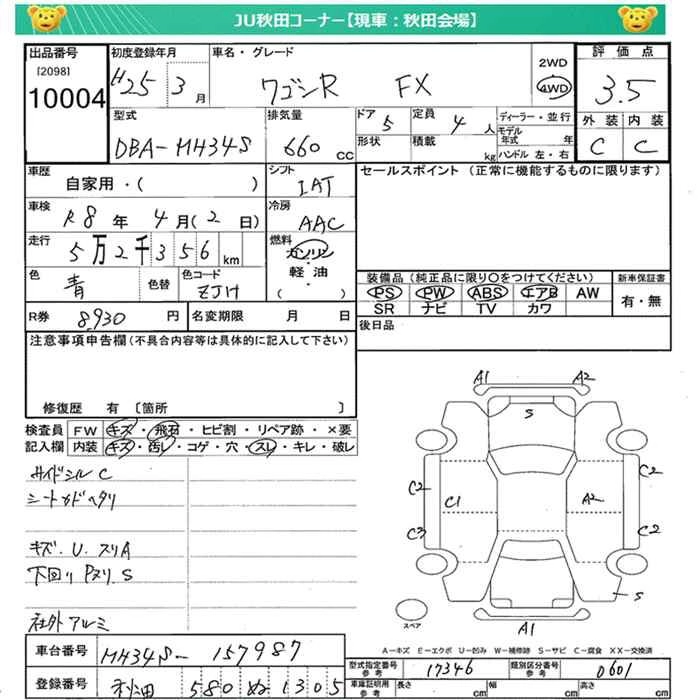 JU秋田コーナー【現車：秋田会場】
出品番号 初度登録年月 車名・グレード 評価点
[2098] 10004
H25 3月 ワゴンR FX 2WD 4WD 3.5
型式 排気量 ドア 5 定員 4人 ディーラー・並行 外装 内装
DBA-MH34S 660cc 形状 積載 kg モデル年式 年 ハンドル 左・右 C C
車歴 シフト セールスポイント（正常に機能するものに限ります）
自家用・( ) IAT
車検 冷房
R8年 4月(2日) AAC
走行 燃料
5万2千356km ガソリン・軽油・( )
色 色替 色コード 装備品（純正品に限り○をつけてください） 新車保証書
青 ZJH PS PW ABS エアB AW 有・無
SR ナビ TV カワ
R券 8,930円 名変期限 月 日 後日品
注意事項申告欄（不具合内容等は具体的に記入して下さい）
修復歴 有 〔箇所 〕
検査員 FW キズ・飛石・ヒビ割・リペア跡・×要
記入欄 内装 キズ・汚レ・コゲ・穴・スレ・キレ・破レ
サイドシルC
シートカドヘタリ
キズ.U.スリA
下回りPヌリ.S
社外アルミ
A1 A2
S
C2 C1 A2 C2
C3 C2
S
スペア A1
A－キズ E－エクボ U－凹み W－補修跡 S－サビ C－腐食 XX－交換済
車台番号 MH34S-157987
型式指定番号 参考 17346 類別区分番号 参考 0601
登録番号 秋田 580 ぬ 1305
車庫証明用 参考 長さ cm 幅 cm 高さ cm